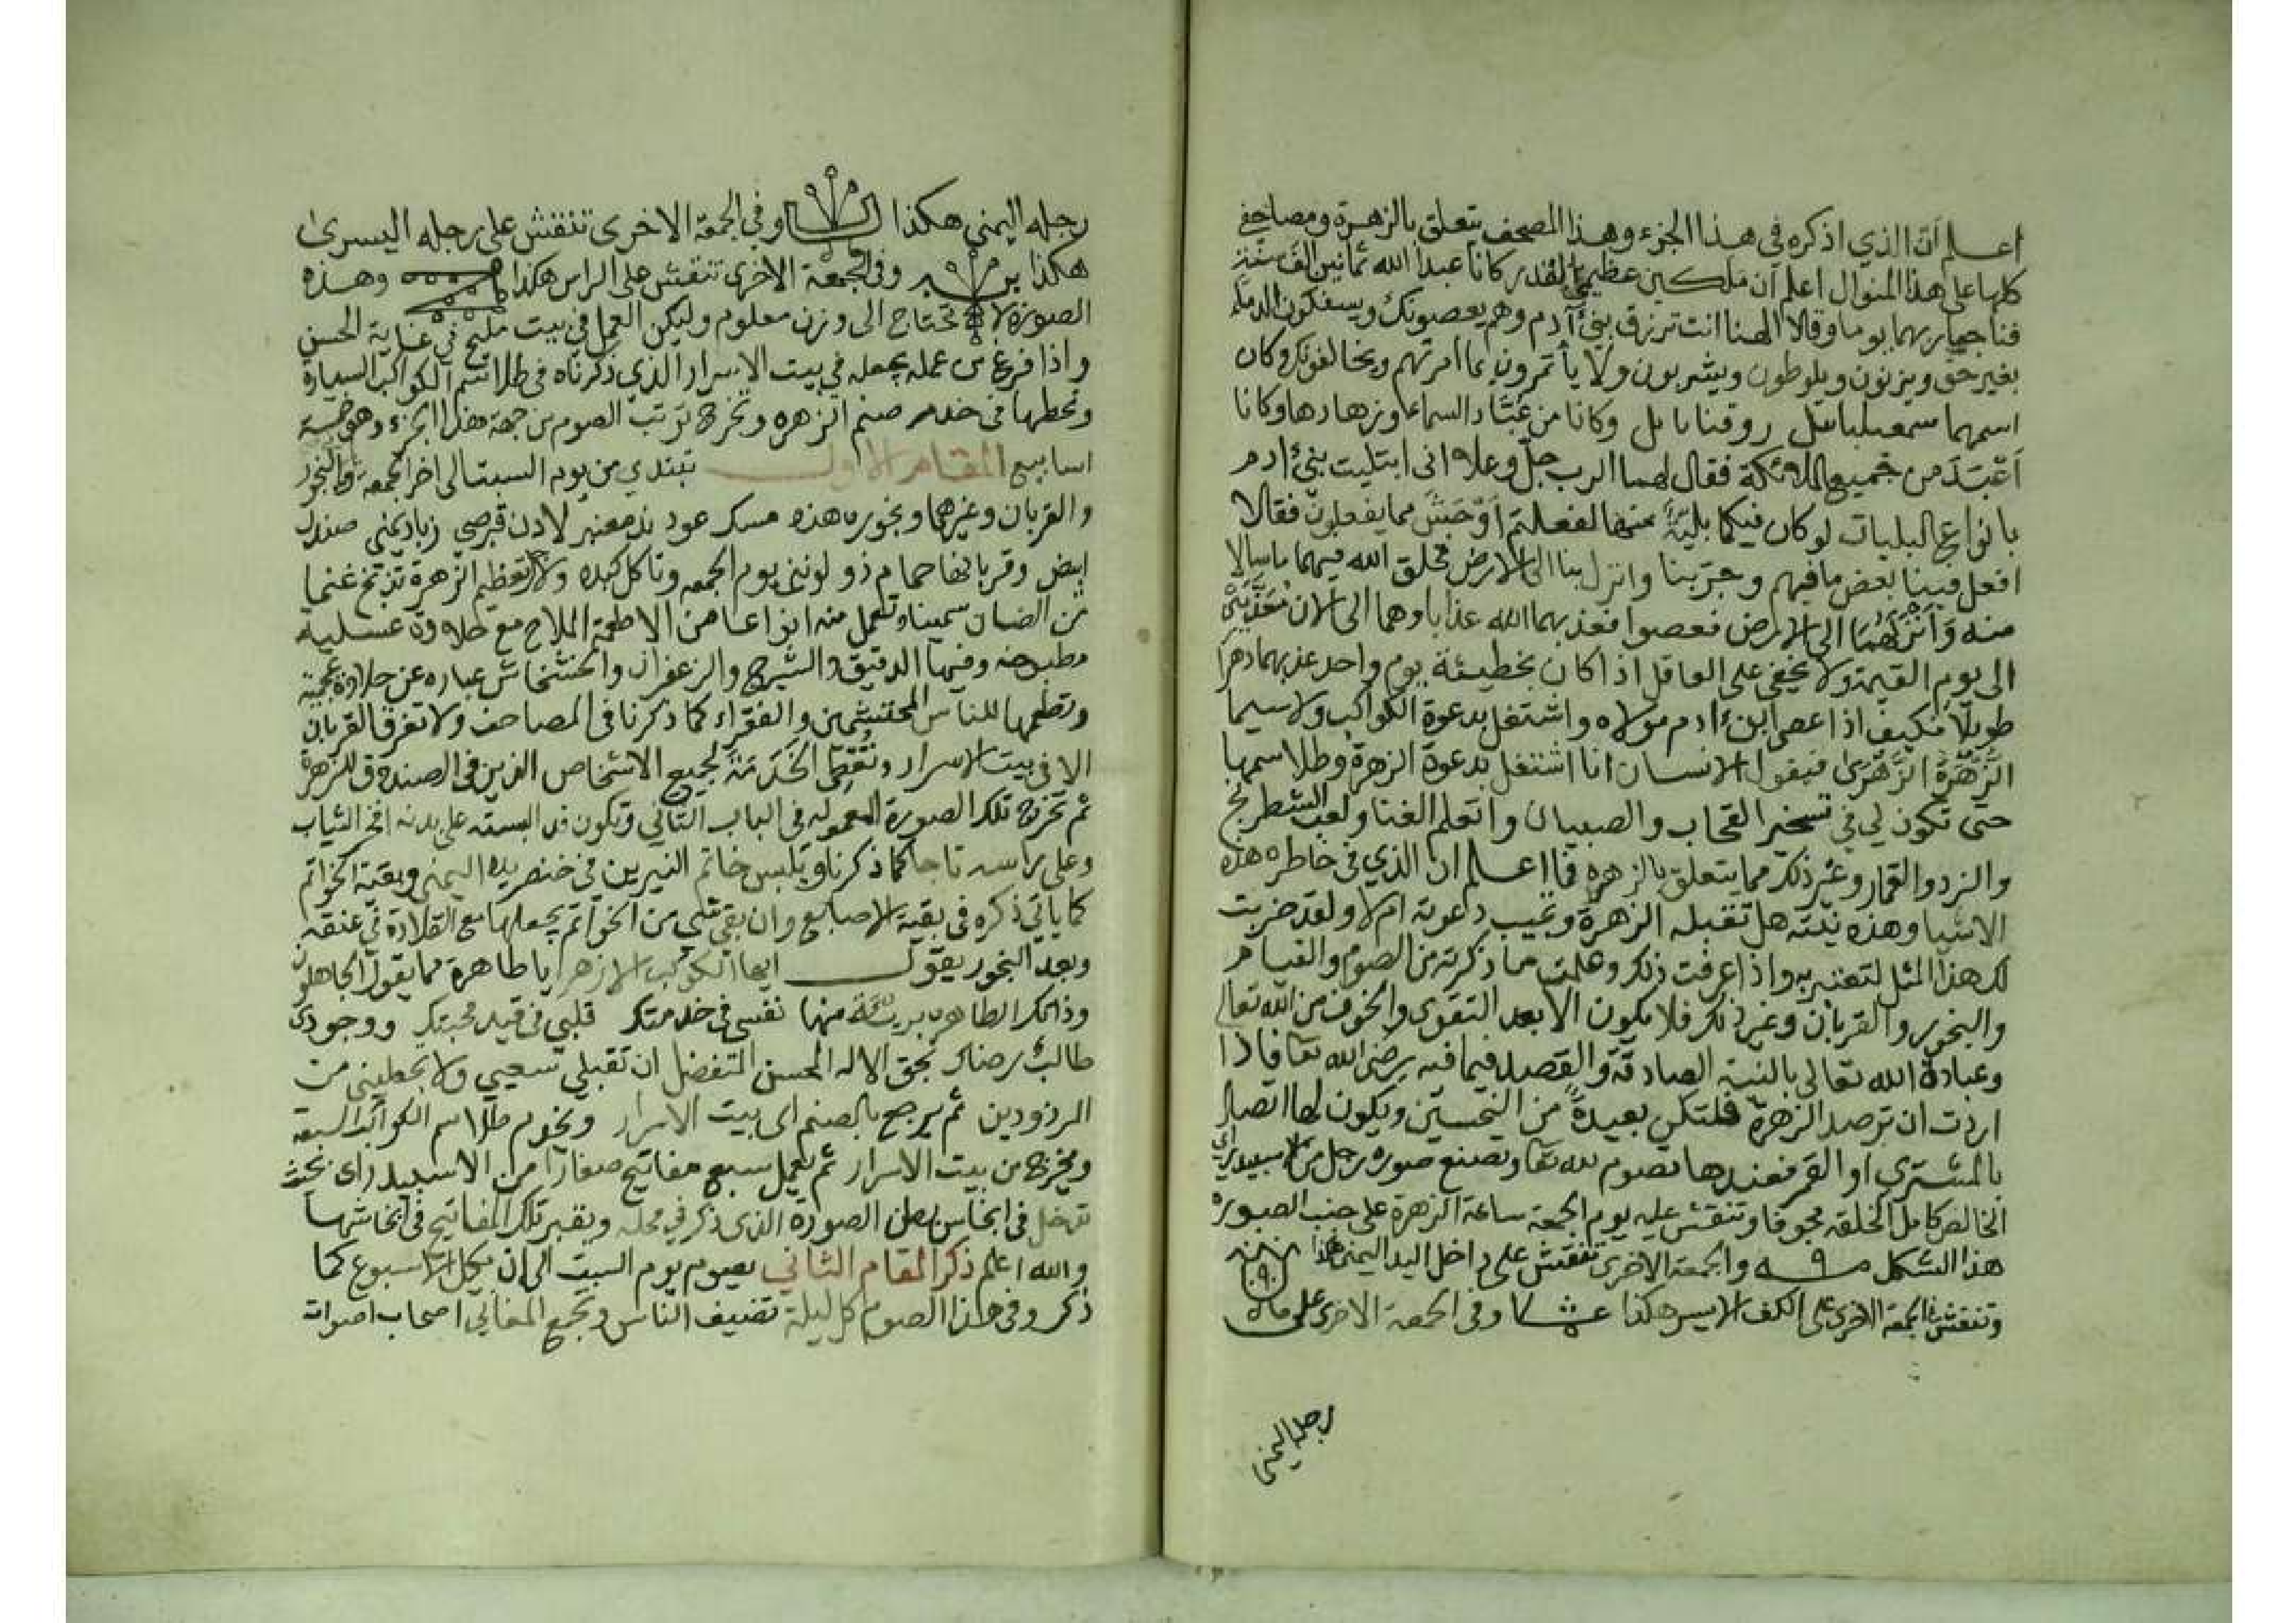 اعلم ان الذي اذكره فى هذا الجزء وهذا المصحف يتعلق بالزهرة ومصاحفي
كلها على هذا المنوال اعلم ان ملكين عظيمي القدر كانا عبدا الله ثمانين الف سنة
فناجيا ربهما يوما وقالا الهنا انت ترزق بنى آدم وهم يعصونك ويسفكون الدماء
بغير حق ويزنون ويلوطون ويشربون ولا يأتمرون بما امرتهم ويخالفونك وكان
اسمهما وكانا من عباد السماء وزهادها وكانا
اعبد من جميع الملائكة فقال لهما الرب جل وعلا انى ابتليت بنى ادم
بانواع البليات لو كان فيكما بلية منها لفعلتم اوحش مما يفعلون فقالا
افعل فينا بعض ما فيهم وجربنا وانزل بنا الى الارض فخلق الله فيهما ما سالا
منه وانزلهما الى الارض فعصوا فعذبهما الله عذابا وهما الى الان معذبين
الى يوم القيمة ولا يخفى على العاقل اذا كان بخطيئة يوم واحد عذبهما دهرا
طويلا فكيف اذا عصى ابن ادم مولاه واشتغل بدعوة الكواكب ولا سيما
الزهرة الزهرى فيقول الانسان انا اشتغل بدعوة الزهرة وطلاسمها
حتى تكون لي في تسخير القحاب والصبيان واتعلم الغنا ولعب الشطرنج
والنرد والقمار وغير ذلك مما يتعلق بالزهره فما اعلم ان الذي فى خاطره هذه
الاشيا وهذه نيته هل تقبله الزهرة وتجيب دعوته ام لا ولقد ضربت
لك هذا المثل لتعتبر به واذا عرفت ذلك وعلمت مما ذكرته من الصوم والقيام
والبخور والقربان وغير ذلك فلا يكون الا بعد التقوى والخوف من الله تعالى
وعبادة الله تعالى بالنية الصادقة والقصد فيما فيه رضى الله تعا فاذا
اردت ان ترصد الزهرة فلتكن بعيدة من النحسين ويكون لها اتصال
بالمشتري او القمر فعندها تصوم لله تعا وتصنع صورة رجل من الاسبيدراى
الخالص كامل الخلقه مجوفا وتنقش عليه يوم الجمعة ساعة الزهرة على جنب الصورة
هذا الشكل والجمعة الاخرى تنقش على داخل اليد اليمنى هكذا
وتنقش في الجمعة الاخرى على الكف الايسر هكذا وفى الجمعة الاخرى على
رجله اليمنى
رجله اليمنى هكذا وفي الجمعة الاخرى تنقش على رجله اليسرى
هكذا وفى الجمعة الاخرى تنقش على الراس هكذا وهذه
الصورة لا تحتاج الى وزن معلوم وليكن العمل في بيت مليح في غاية الحسن
واذا فرغ من عمله يجعله في بيت الاسرار الذي ذكرناه فى طلاسم الكواكب السيارة
وتحطها فى خدمة صنم الزهره وتخرج ترتب الصوم من جهة هذا الجزء وهو خمسة
اسابيع المقام الاول تبتدي من يوم السبت الى اخر الجمعة والبخور
والقربان وغيرهما وبخوره هذه مسك عود ند عنبر لادن قبرصي زباد يمني صندل
ابيض وقربانها حمام ذو لونين يوم الجمعه وتاكل كبده ولاجل تعظيم الزهرة تذبح غنما
من الضان سمينا وتعمل منه انواعا من الاطعمة الملاح مع حلاوة عسلية
مطبوخه وفيها الدقيق والشيرج والزعفران والخشخاش عباره عن حلاوة عجمية
وتطعمها للناس المحتشمين والفقراء كما ذكرنا فى المصاحف ولا تفرق القربان
الا فى بيت الاسرار وتقضى الخدمة لجميع الاشخاص الذين فى الصندوق للزهرة
ثم تخرج تلك الصورة المعموله فى الباب الثاني وتكون قد البسته على بدنه افخر الثياب
وعلى راسه تاجا كما ذكرنا ويلبس خاتم النيرين في خنصر يده اليمنى وبقية الخواتم
كما ياتي ذكره فى بقية الاصابع وان بقي شي من الخواتم يجعلها مع القلادة في عنقه
وبعد البخور يقول ايها الكوكب الازهر يا طاهرة مما يقول الجاهلون
وذاتك الطاهره بريئة منها نفسى فى خدمتك قلبي فى قيد محبتك ووجودى
طالب رضاك بحق الاله المحسن المتفضل ان تقبلي سعيي ولا تجعليني من
المردودين ثم يرجع بالصنم الى بيت الاسرار ويخدم طلاسم الكواكب السبعة
ويخرج من بيت الاسرار ثم يعمل سبع مفاتيح صغارا من الاسبيدراى بحيث
تدخل فى انخاش بطن الصورة الذى ذكر في محله وتقبر تلك المفاتيح فى انخاشها
والله اعلم ذكر المقام الثاني يصوم يوم السبت الى ان يكمل الاسبوع كما
ذكر وفى هذا الصوم كل ليلة تضيف الناس وتجمع المغاني اصحاب اصوات